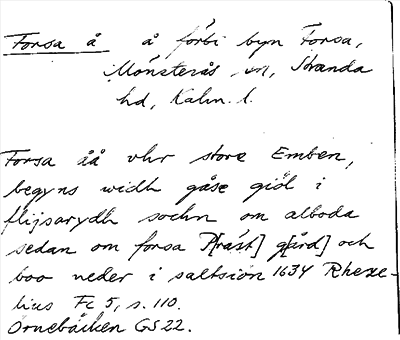 Forsa å å förbi byn Forsa,
Mönsterås sn, Stranda
hd, Kalm. l.
Forsa åå uhr store Emben,
begyns widh gåse giöl i
flijsarydh sochn om alboda
sedan om forsa P[räst] g[ård] och
boo neder i saltsiön 1634 Rheze-
lius Fc 5, s. 110.
Örnebäcken GS 22.